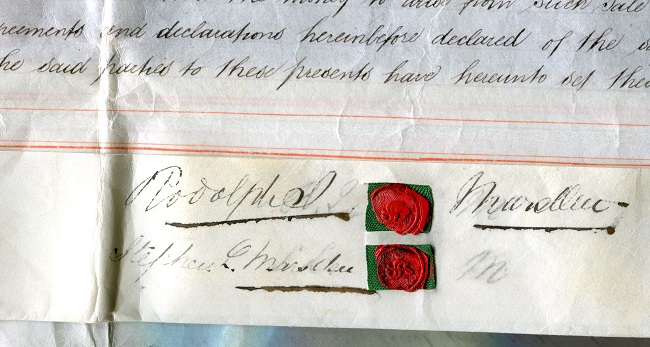 the money to arise from such sale
reements and declarations hereinbefore declared of the
he said parties to these presents have hereunto set thei
Rodolphe Marsden
Stephen L. Marsden M